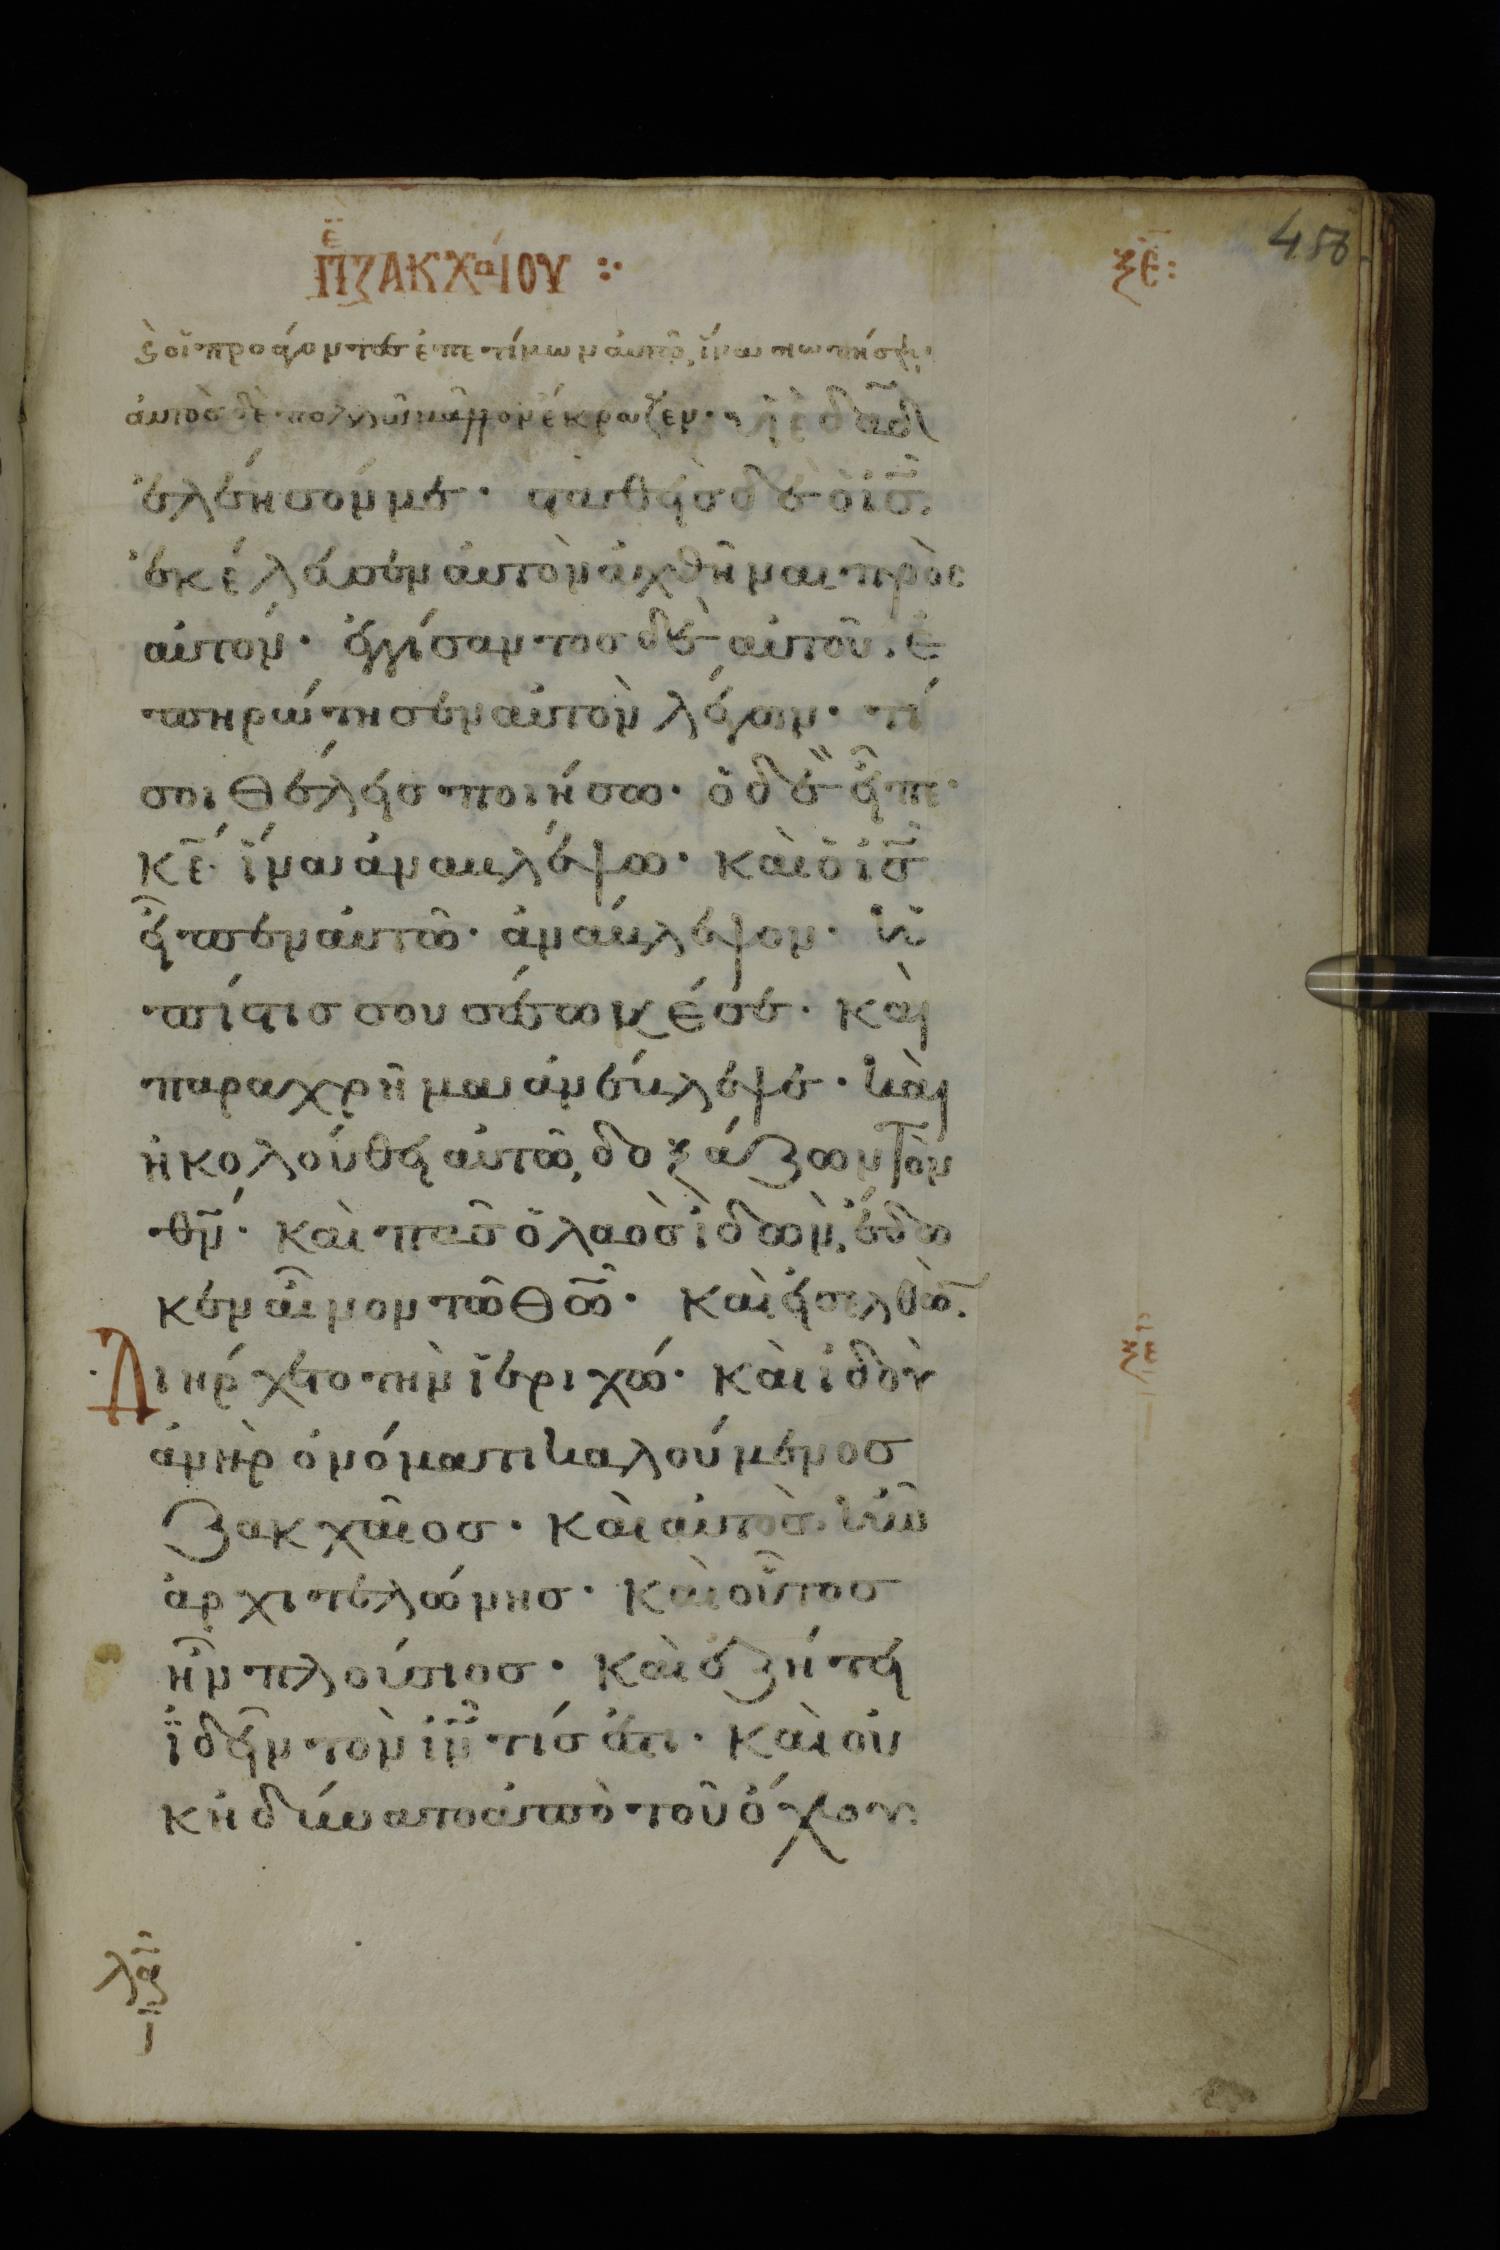 περὶ ΖΑΚΧαίΟΥ :· ξε: 458
κ(αὶ) οἱ προάγοντες ἐπετίμων αὐτῶ, ἵνα σιωπήσῃ·
αὐτὸς δὲ πολλῶ μᾶλλον ἔκραζεν· υἱὲ δαδ
ἐλέησόν με· σταθεὶς δὲ ὁ ις.
ἐκέλευσεν αὐτὸν ἀχθῆναι πρὸς
αὐτόν· ἐγγίσαντος δὲ αὐτοῦ. ἐ
πηρώτησεν αὐτὸν λέγων· τί
σοι θέλεις ποιήσω· ὁ δὲ εἶπε·
κε· ἵνα ἀναβλέψω· καὶ ὁ ις
εἶπεν αὐτῶ· ἀνάβλεψον· ἡ
πίστις σου σέσωκέ σε· καὶ
παραχρῆμα ἀνέβλεψε· καὶ
ἠκολούθει αὐτῶ, δοξάζων τὸν
θν· καὶ πᾶς ὁ λαὸς ἰδὼν, ἔδω
κεν αἶνον τῶ θω· καὶ εἰσελθὼν.
Διήρχετο τὴν ἱεριχώ· καὶ ἰδοὺ ξε
ἀνὴρ ὀνόματι καλούμενος
ζακχαῖος· καὶ αὐτὸς ἦν
ἀρχιτελώνης· καὶ οὗτος
ἦν πλούσιος· καὶ ἐζήτει
ἰδεῖν τὸν ιν τίς ἐστι· καὶ οὐ
κ ἠδύνατο ἀπὸ τοῦ ὄχλου.